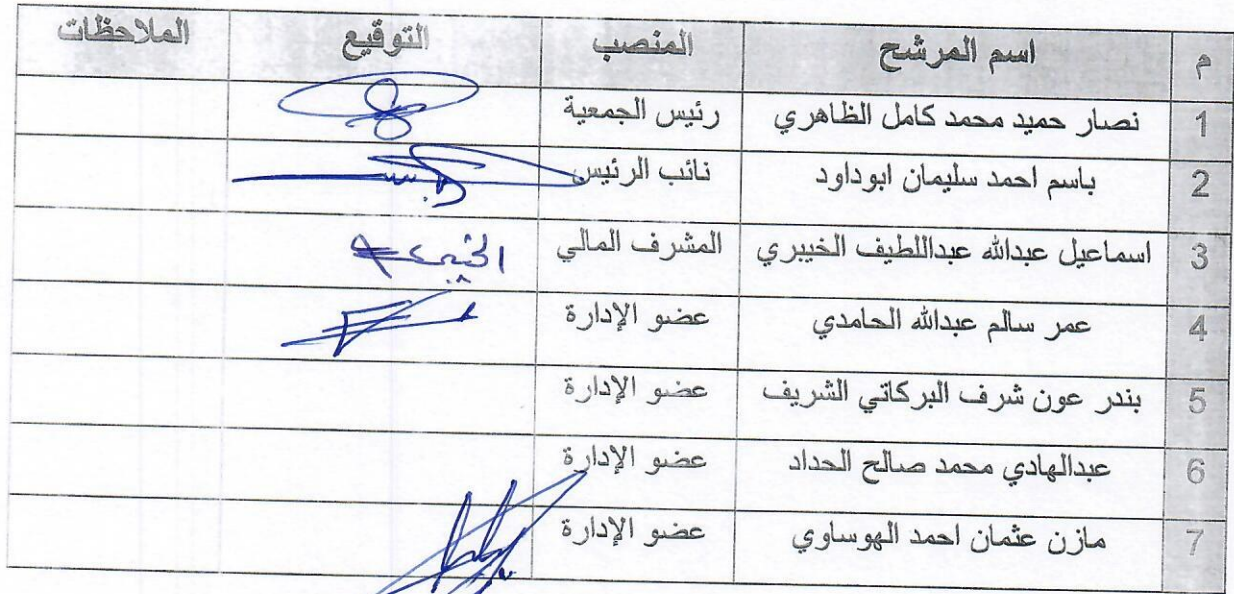 م اسم المرشح المنصب التوقيع الملاحظات
1 نصار حميد محمد كامل الظاهري رئيس الجمعية
2 باسم احمد سليمان ابوداود نائب الرئيس
3 اسماعيل عبدالله عبداللطيف الخيبري المشرف المالي
4 عمر سالم عبدالله الحامدي عضو الإدارة
5 بندر عون شرف البركاتي الشريف عضو الإدارة
6 عبدالهادي محمد صالح الحداد عضو الإدارة
7 مازن عثمان احمد الهوساوي عضو الإدارة